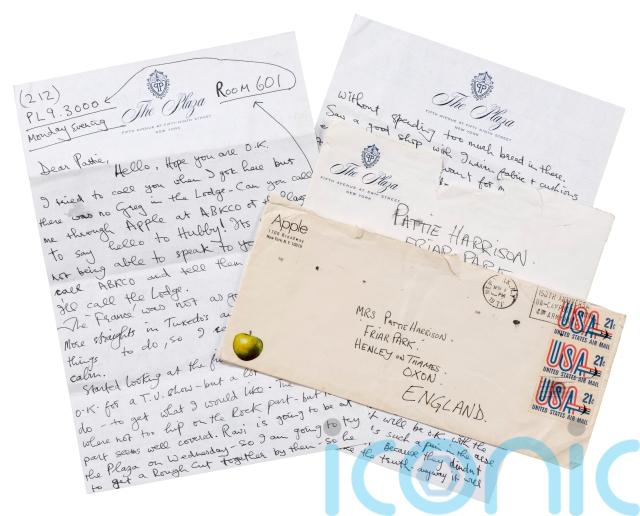 (212)
PL 9.3000
Monday Evening
The Plaza
FIFTH AVENUE AT FIFTY NINTH STREET
NEW YORK
ROOM 601
Dear Pattie,
Hello, Hope you are O.K.
I tried to call you when I got here but
there was no Greg in the Lodge - Can you call
me through Apple at ABKCO or the Plaza
to say hello to Hubby! Its
not being able to speak to yo
call ABKCO and tell them
I'll call the Lodge.
The 'Frans' was not as go
More straights in Tuxedos an
things to do, so I
calm.
Started looking at the fi
O.K. for a T.V. show - but a lot
do - to get what I would like. The
where not too hip on the Rock part - but
part seems well covered. Ravi is going to be at
the Plaza on Wednesday - so I am going to try
to get a Rough Cut together by then - so he
The Plaza
FIFTH AVENUE AT FIFTY NINTH STREET
NEW YORK
without spending too much bread in there.
Saw a good shop with Indian fabric + cushions
want for m
it will be O.K. with the
is such a pain in the arse
Because they didn't
the truth - anyway it will
The Plaza
FIFTH AVENUE AT FIFTY NINTH STREET
NEW YORK
PATTIE HARRISON.
FRIAR PARK
Apple
1700 Broadway
New York, N.Y. 10019
MRS PATTIE HARRISON.
FRIAR PARK.
HENLEY ON THAMES.
OXON.
ENGLAND.
PM
1971
USA 21c
UNITED STATES AIR MAIL
USA 21c
UNITED STATES AIR MAIL
USA 21c
UNITED STATES AIR MAIL
iconic